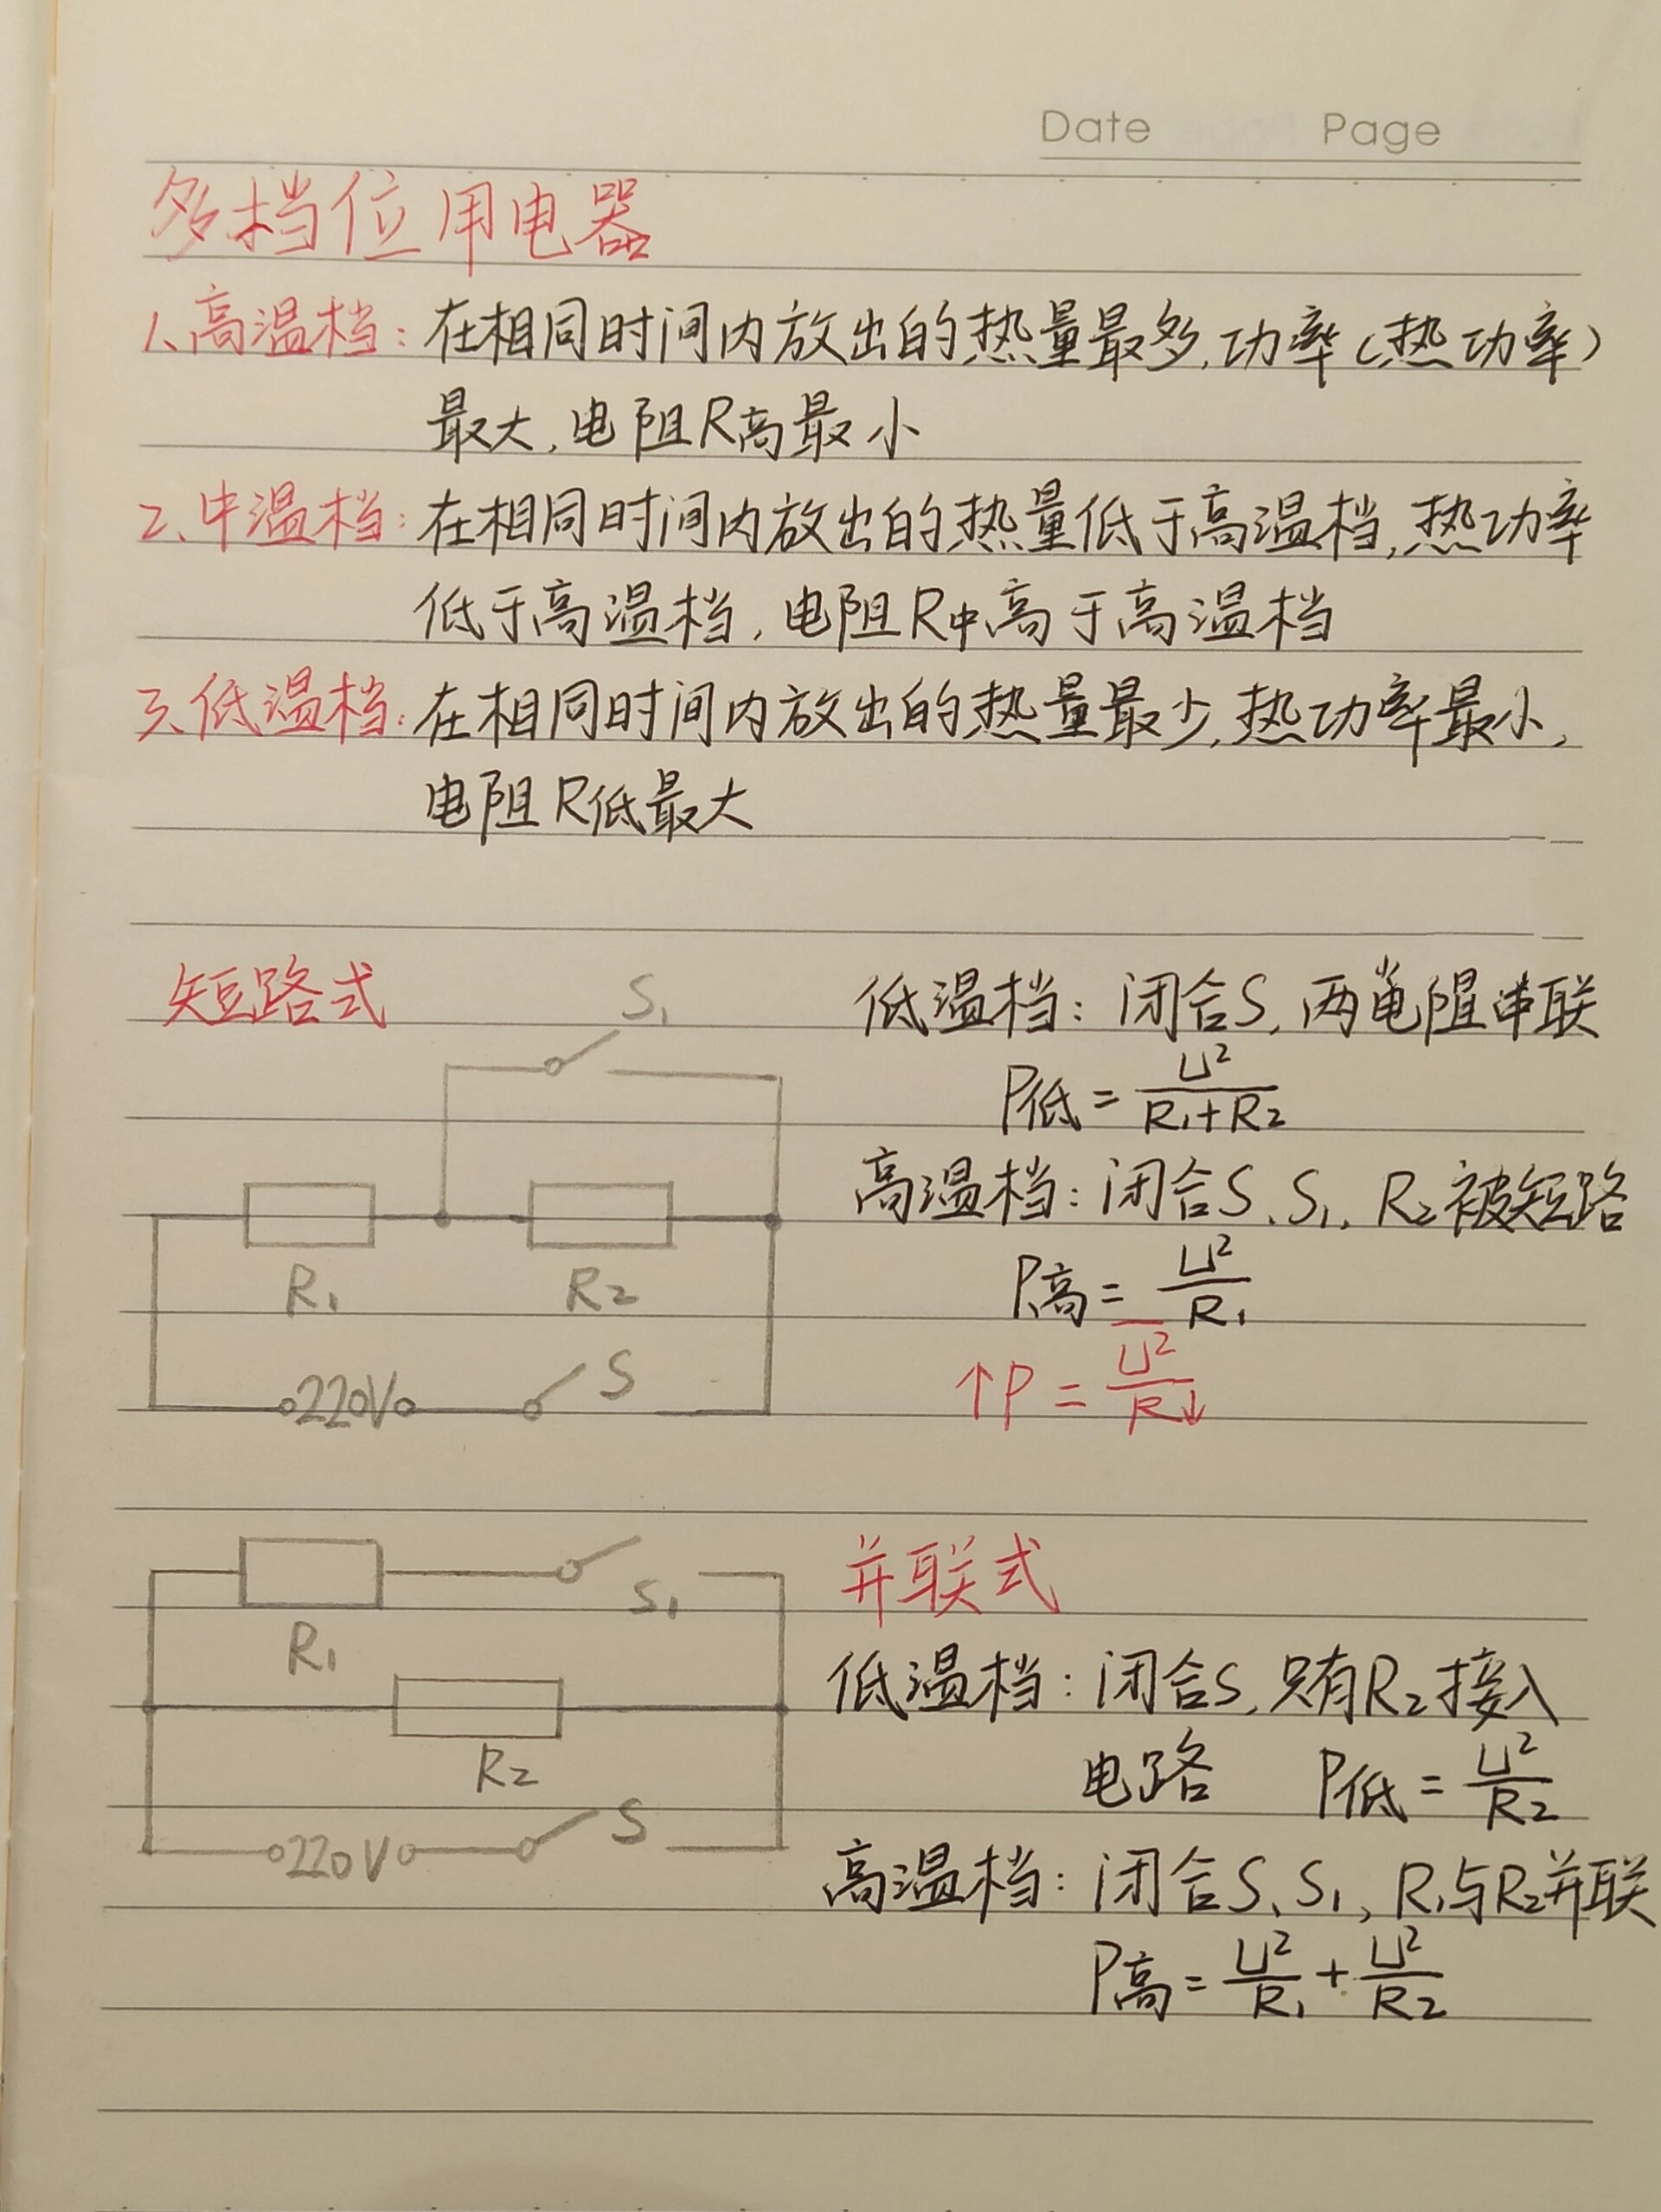 Date Page
多档位用电器
1、高温档：在相同时间内放出的热量最多，功率（热功率）
最大，电阻R高最小
2、中温档：在相同时间内放出的热量低于高温档，热功率
低于高温档，电阻R中高于高温档
3、低温档：在相同时间内放出的热量最少，热功率最小，
电阻R低最大
短路式
S₁
R₁ R₂
220V S
低温档：闭合S，两电阻串联
P低 = U²/(R₁+R₂)
高温档：闭合S、S₁，R₂被短路
P高 = U²/R₁
↑P = U²/R↓
R₁ S₁
R₂
220V S
并联式
低温档：闭合S，只有R₂接入
电路 P低 = U²/R₂
高温档：闭合S、S₁，R₁与R₂并联
P高 = U²/R₁ + U²/R₂